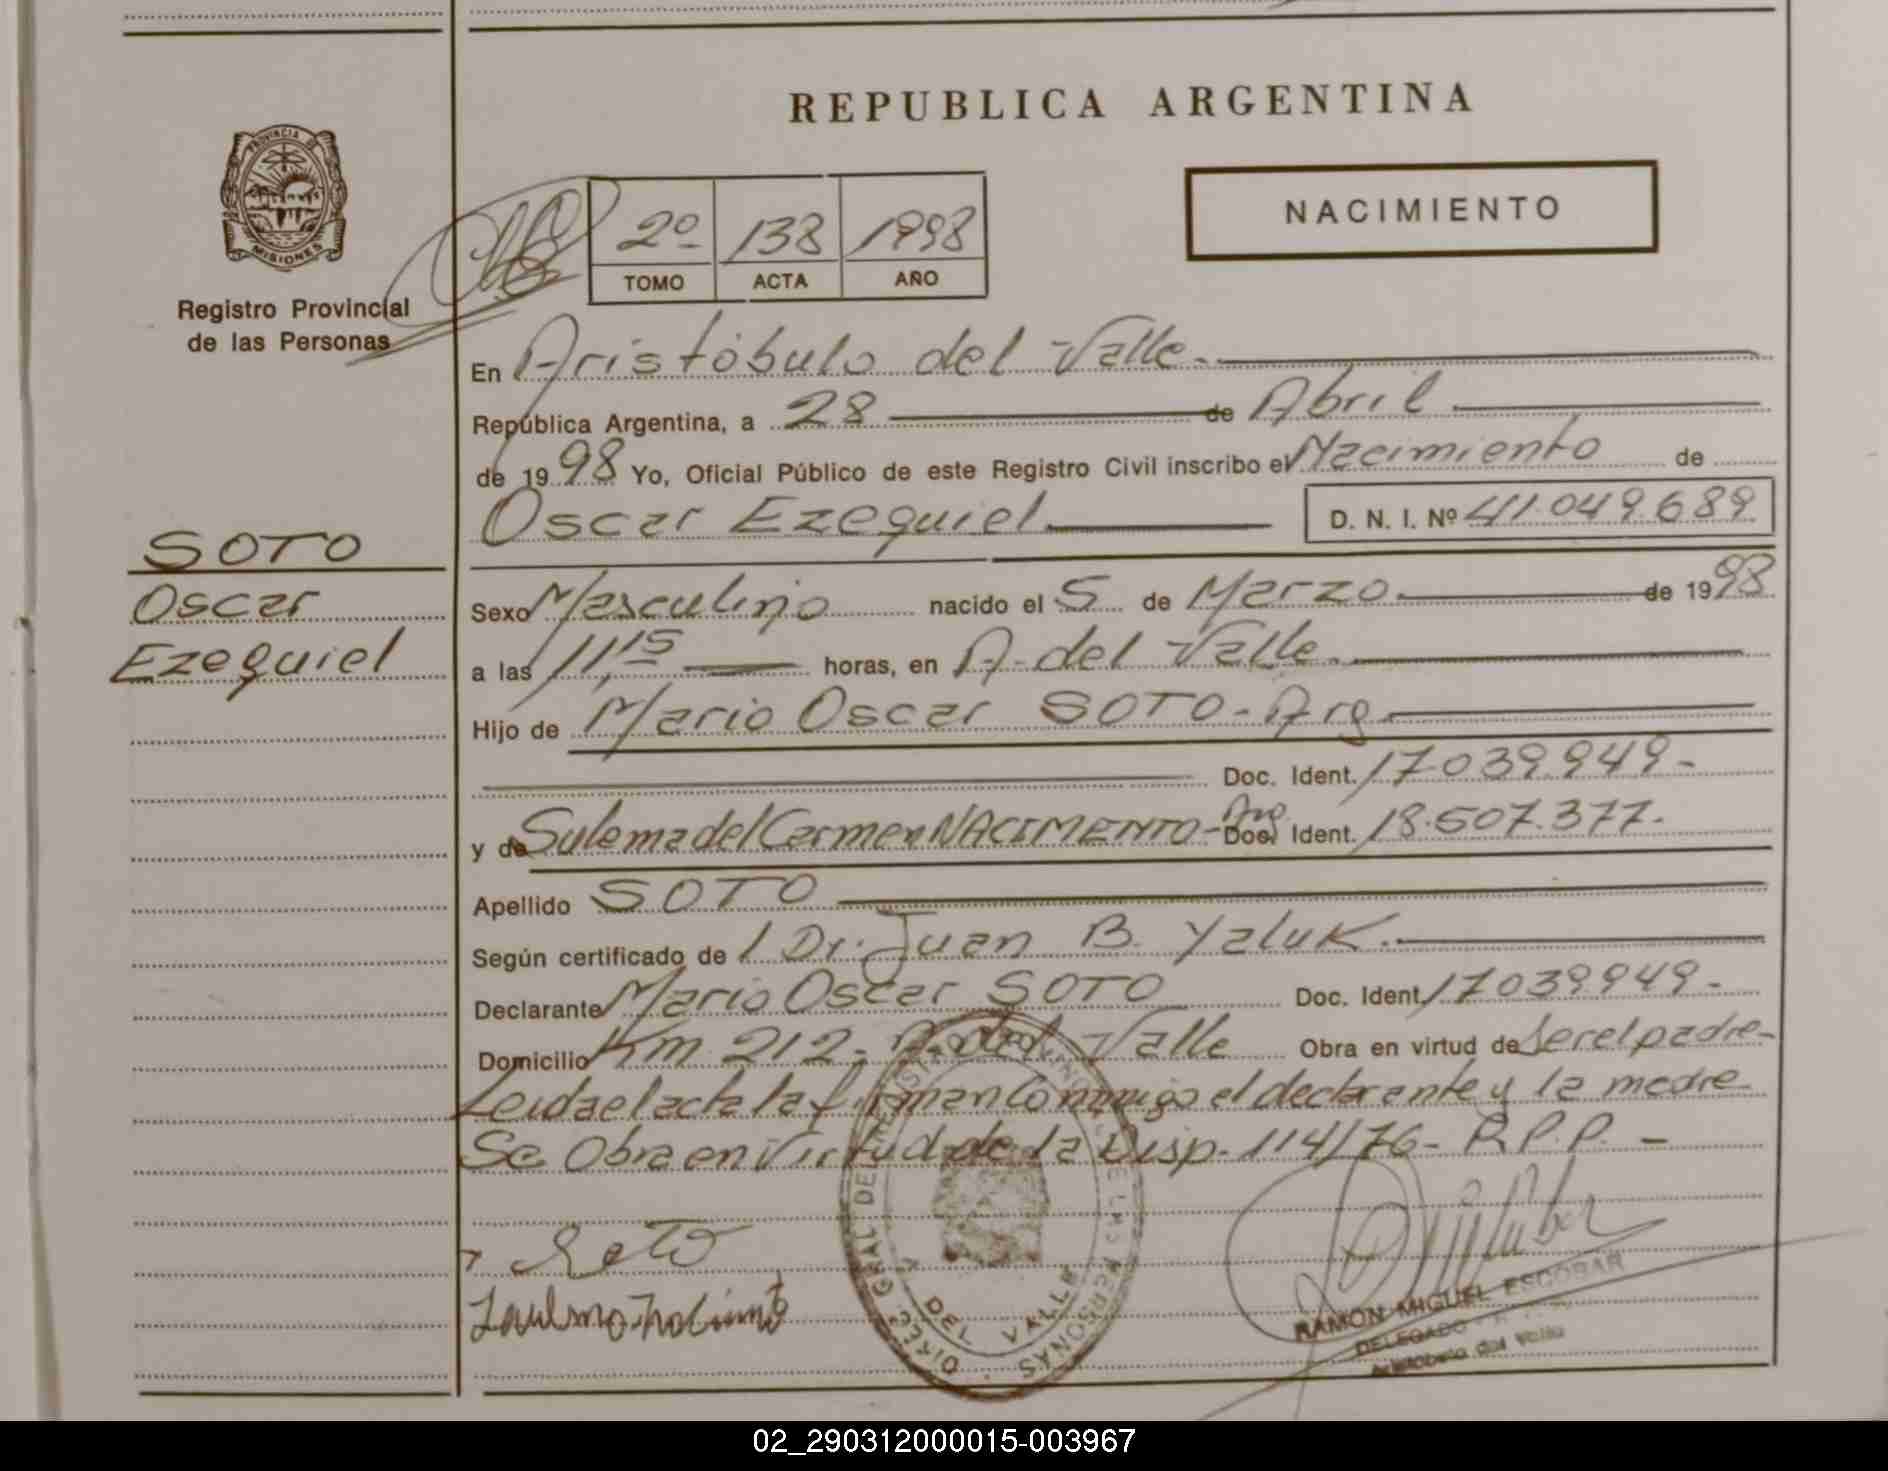 REPUBLICA ARGENTINA
PROVINCIA DE
MISIONES
Registro Provincial
de las Personas
2º 138 1998
TOMO ACTA AÑO
NACIMIENTO
En Aristóbulo del Valle.
República Argentina, a 28 de Abril
de 1998 Yo, Oficial Público de este Registro Civil inscribo el Nacimiento de
Oscar Ezequiel D. N. I. Nº 41.049.689
SOTO
Oscar
Ezequiel
Sexo Masculino nacido el 5 de Marzo. de 1998
a las 11,15 horas, en A. del Valle.
Hijo de Mario Oscar SOTO - Arg.
Doc. Ident. 17.039.949.-
y de Sulema del Carmen NACIMENTO - Arg Doc. Ident. 18.507.377.
Apellido SOTO
Según certificado de / Dr. Juan B. Yaluk.
Declarante Mario Oscar SOTO Doc. Ident. 17.039.949.-
Domicilio Km 212. A. del Valle Obra en virtud de Ser el padre-
Leida el acta la firman Conmigo el declarante y la madre
Se Obra en Virtud de la Disp. 114/76- R.P.P. -
Soto
DIREC. GRAL. DEL REGISTRO PROVINCIAL DE LAS PERSONAS
A. DEL VALLE
RAMON MIGUEL ESCOBAR
DELEGADO
Aristóbulo del Valle
02_290312000015-003967